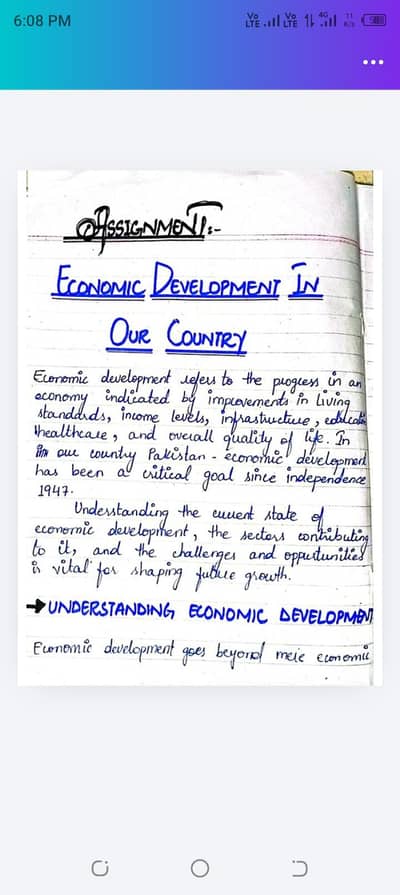 6:08 PM
Vo LTE Vo LTE 4G
ASSIGNMENT:-
ECONOMIC DEVELOPMENT IN
OUR COUNTRY
Economic development refers to the progress in an
economy indicated by improvements in living
standards, income levels, infrastructure, education
healthcare, and overall quality of life. In
our country Pakistan - economic development
has been a critical goal since independence
1947.
Understanding the current state of
economic development, the sectors contributing
to it, and the challenges and opportunities
is vital for shaping future growth.
→UNDERSTANDING ECONOMIC DEVELOPMENT
Economic development goes beyond mere economic